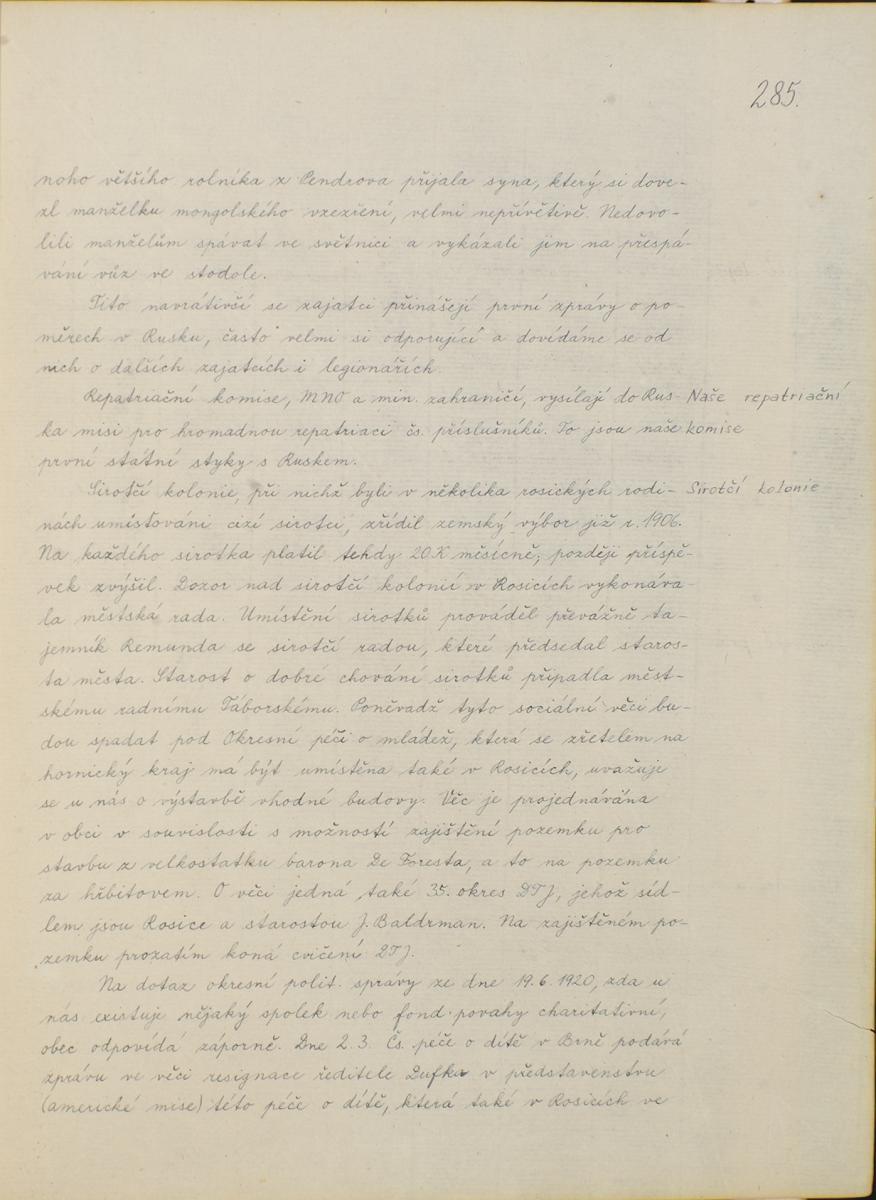 285.
noho většího rolníka z Cendrova přijala syna, který si dove-
zl manželku mongolského vzezření, velmi nepřívětivě. Nedovo-
lili manželům spávat ve světnici a vykázali jim na přespá-
vání vůz ve stodole.
Tito navrátivší se zajatci přinášejí první zprávy o po-
měrech v Rusku, často velmi si odporující a dovídáme se od
nich o dalších zajatcích i legionářích.
Repatriační komise, MNO a min. zahraničí, vysílají do Rus- Naše repatriační
ka misi pro hromadnou repatriaci čs. příslušníků. To jsou naše komise
první státní styky s Ruskem.
Sirotčí kolonie, při nichž byli v několika rosických rodi- Sirotčí kolonie
nách umísťováni cizí sirotci, zřídil zemský výbor již r. 1906.
Na každého sirotka platil tehdy 20 K měsícně; později příspě-
vek zvýšil. Dozor nad sirotčí kolonií v Rosicích vykonáva-
la městská rada. Umístění sirotků prováděl převážně ta-
jemník Remunda se sirotčí radou, které předsedal staros-
ta města. Starost o dobré chování sirotků připadla měst-
skému radnímu Táborskému. Poněvadž tyto sociální věci bu-
dou spadat pod Okresní péči o mládež, která se zřetelem na
hornický kraj má být umístěna také v Rosicích, uvažuje
se u nás o výstavbě vhodné budovy. Věc je projednávána
v obci v souvislosti s možností zajištění pozemku pro
stavbu z velkostatku barona De Foresta, a to na pozemku
za hřbitovem. O věci jedná také 35. okres DTJ, jehož síd-
lem jsou Rosice a starostou J. Baldrman. Na zajištěném po-
zemku prozatím koná cvičení DTJ.
Na dotaz okresní polit. správy ze dne 19. 6. 1920, zda u
nás existuje nějaký spolek nebo fond povahy charitativní,
obec odpovídá záporně. Dne 2. 3. Čs. péče o dítě v Brně podává
zprávu ve věci resignace ředitele Dufka v představenstvu
(americké mise) této péče o dítě, která také v Rosicích ve